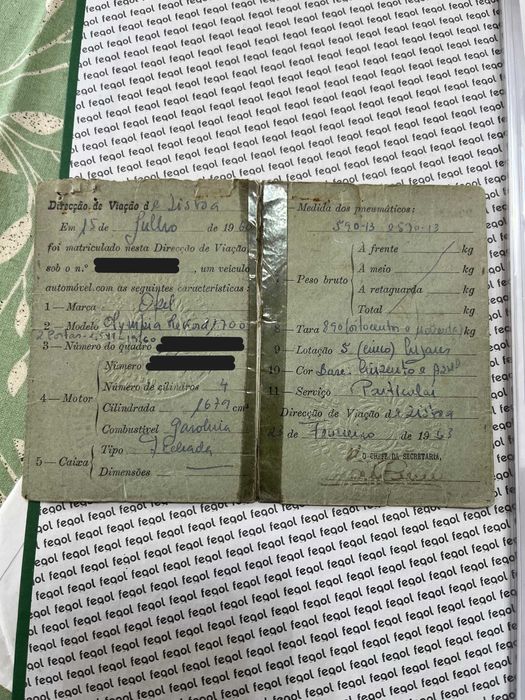 Direcção de Viação de Lisboa
Em 15 de Julho de 1960
foi matriculado nesta Direcção de Viação,
sob o n.º , um veículo
automóvel com as seguintes características:
1 — Marca Opel
2 — Modelo Olympia Rekord 1700
2 Portas
3 — Número do quadro
4 — Motor
Número
Número de cilindros 4
Cilindrada 1679 cm³
Combustível gasolina
5 — Caixa
Tipo Fechada
Dimensões
Medida dos pneumáticos:
590-13 e 590-13
Peso bruto
À frente kg
A meio kg
À retaguarda kg
Total kg
8 — Tara 890 (oitocentos e noventa) kg
9 — Lotação 5 (cinco) lugares
10 — Cor Base: cinzento e azul
11 — Serviço Particular
Direcção de Viação de Lisboa
de Fevereiro de 1963
O CHEFE DA SECRETARIA,
feqol feqol feqol feqol feqol feqol